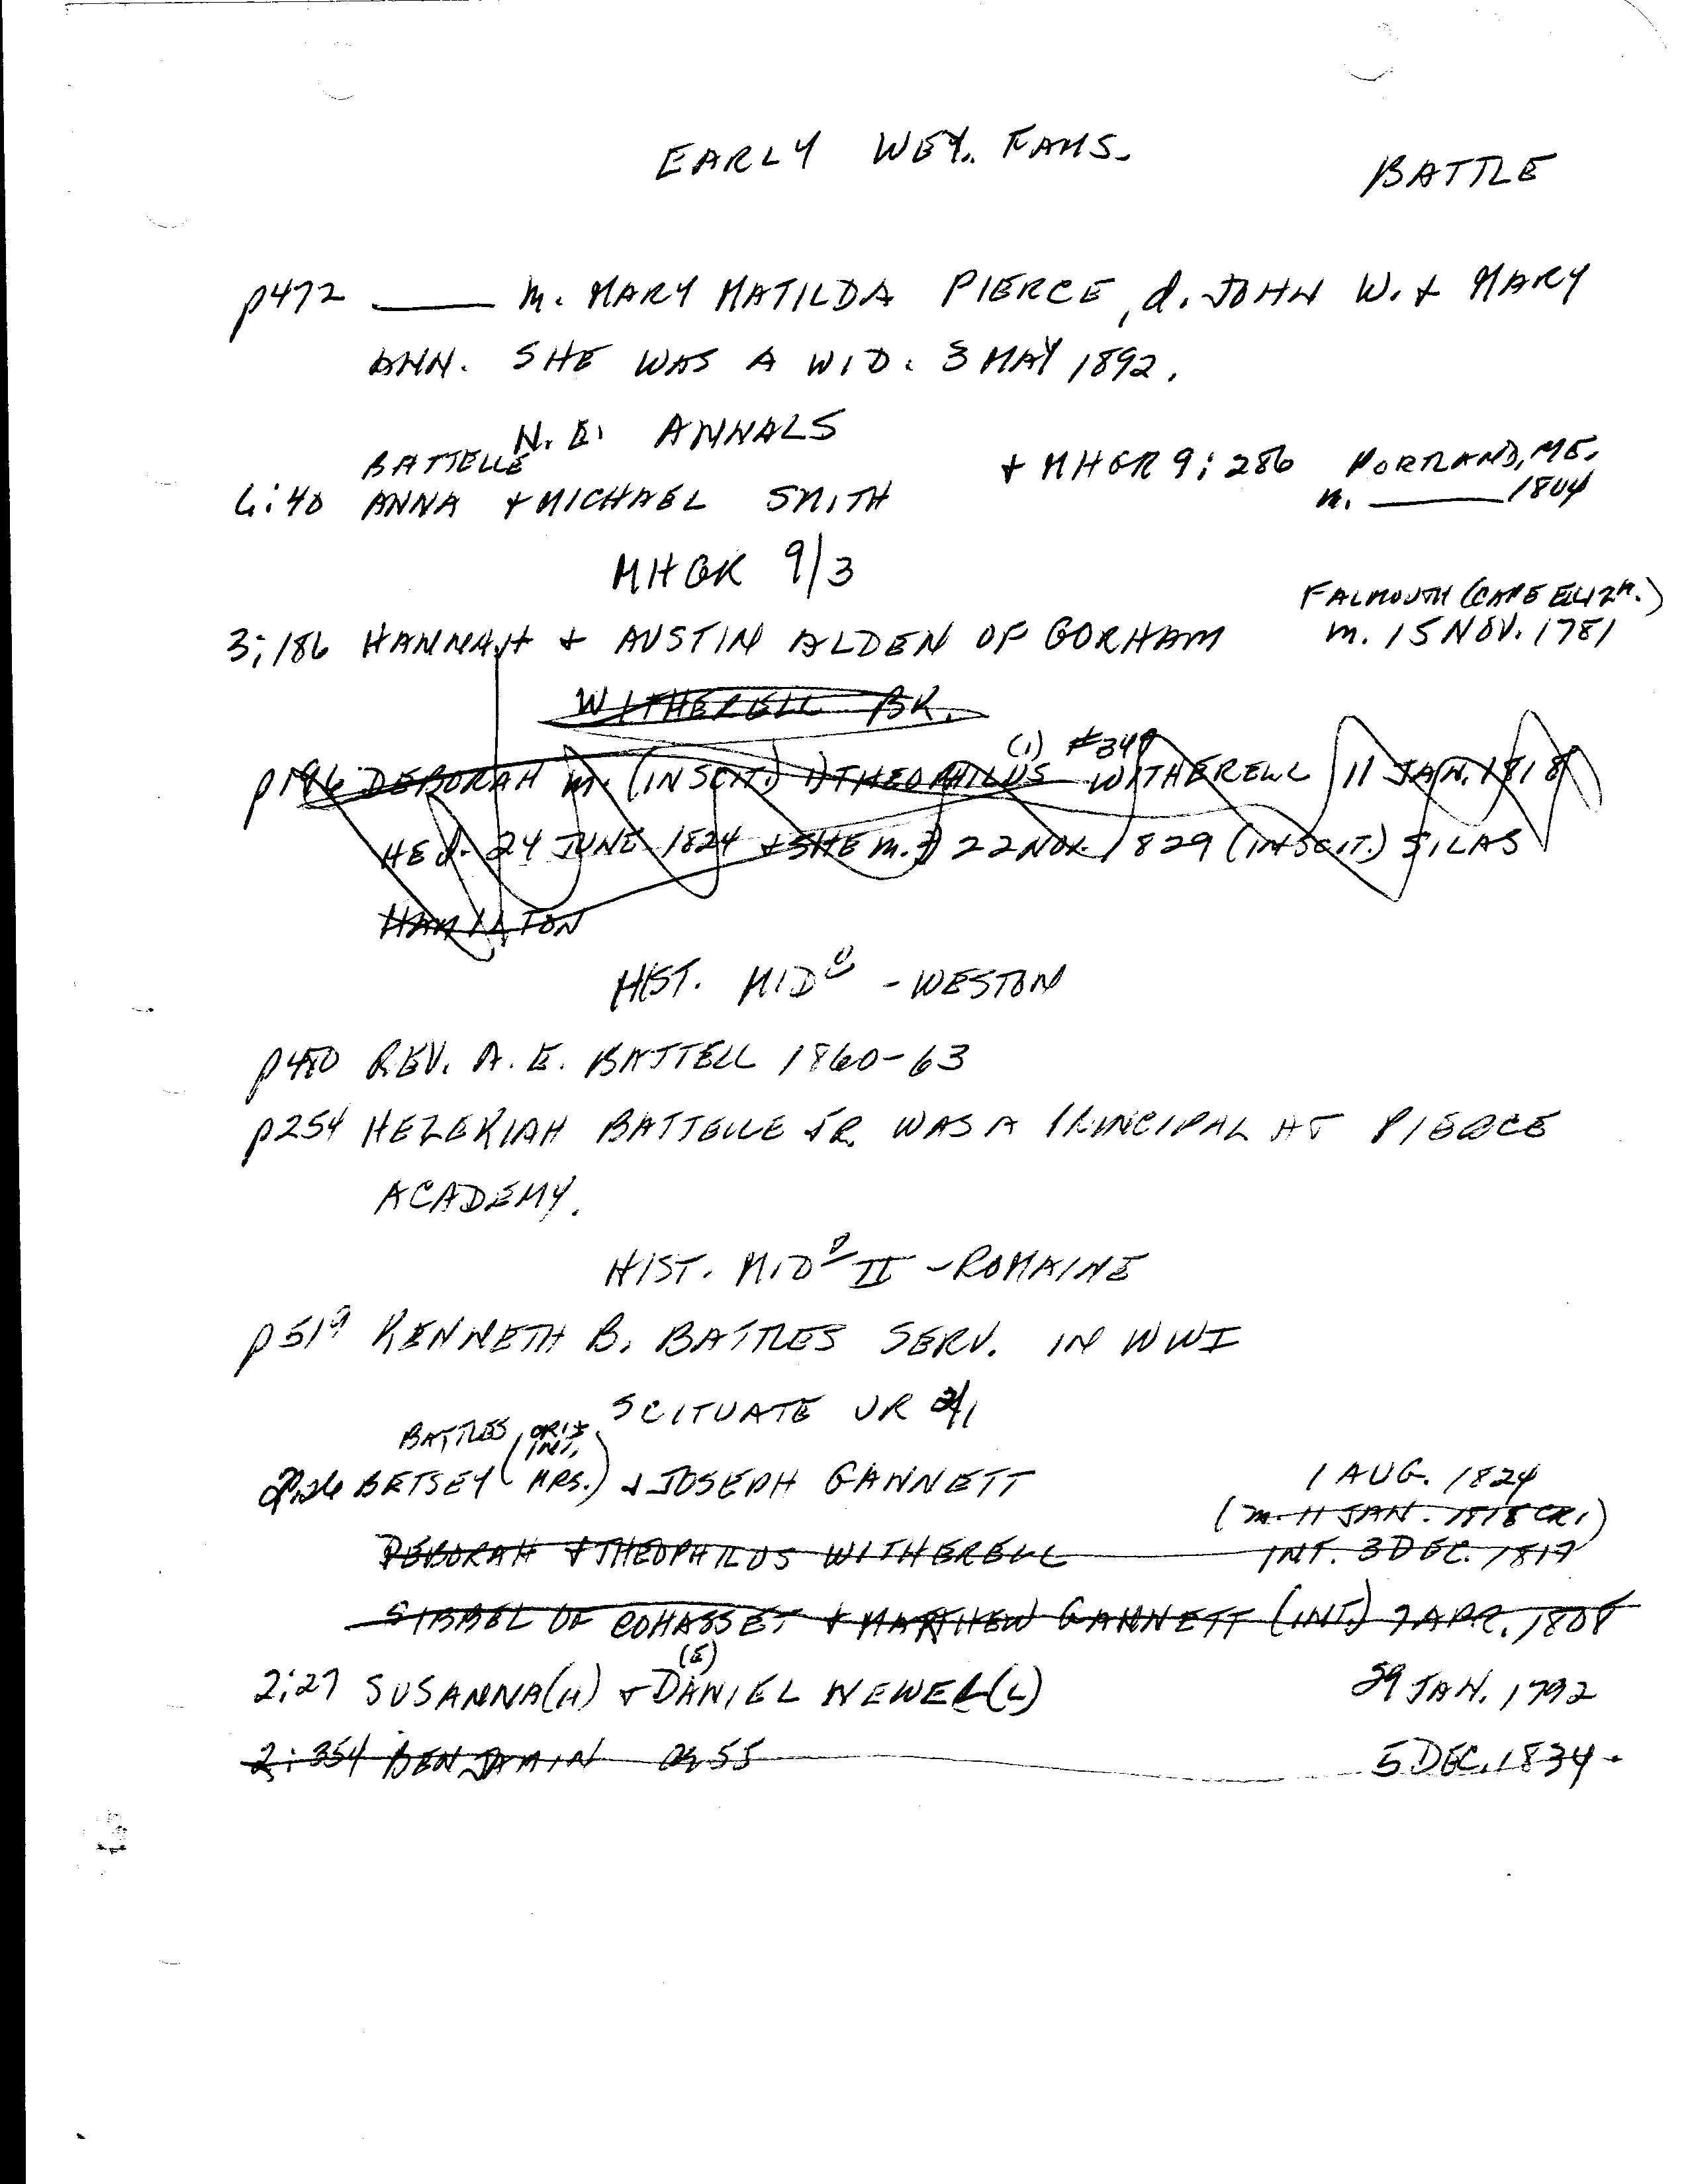 EARLY WEY. FAMS.
BATTLE
p472 ____ m. MARY MATILDA PIERCE, d. JOHN W. + MARY
ANN. SHE WAS A WID. 3 MAY 1892.
N. E. ANNALS
BATTELLE + MHGR 9:286 PORTLAND, ME.
6:40 ANNA + MICHAEL SMITH m. ____ 1804
MHGR 9/3
FALMOUTH (CAPE ELIZH.)
3:186 HANNAH + AUSTIN ALDEN OF GORHAM m. 15 NOV. 1781
WITHERELL BK.
(1) #349
p196 DEBORAH m. (IN SCIT.) 1) THEOPHILUS WITHERELL 11 JAN. 1818
HE d. 24 JUNE 1824 + SHE m. 2) 22 NOV. 1829 (IN SCIT.) SILAS
HAMILTON
HIST. MIDD - WESTON
REV. A. E. BATTELL 1860-63
p254 HEZEKIAH BATTELLE JR. WAS A PRINCIPAL AT PIERCE
ACADEMY.
HIST. MIDD II - ROMAINE
p519 KENNETH B. BATTLES SERV. IN WWI
SCITUATE VR 2/1
BATTLES
2:26 BETSEY (ORIG. INT. MRS.) + JOSEPH GANNETT 1 AUG. 1824
(m. 11 JAN. 1818 CR1)
DEBORAH + THEOPHILUS WITHERELL INT. 3 DEC. 1817
SIBBEL OF COHASSET + MATTHEW GANNETT (INT.) 7 APR. 1808
(E)
2:27 SUSANNA(H) + DANIEL NEWEL(L) 29 JAN. 1792
2:354 BENJAMIN 55 5 DEC. 1834.